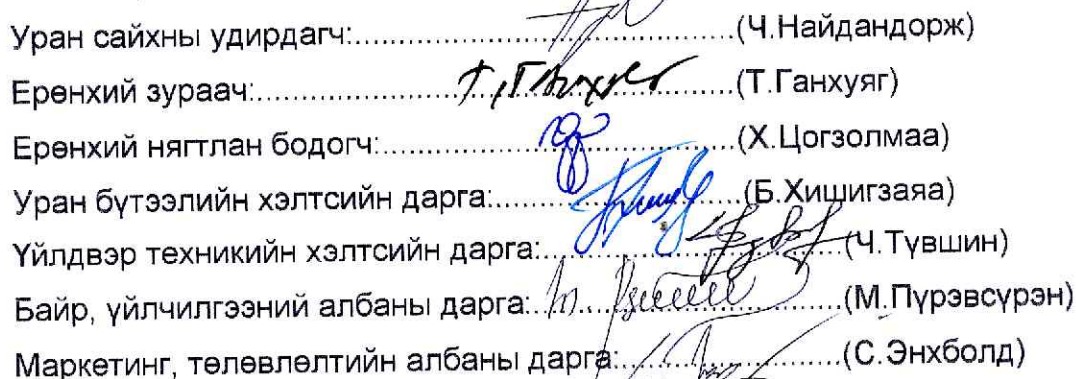 Уран сайхны удирдагч:..................................................(Ч.Найдандорж)
Ерөнхий зураач:..................................................(Т.Ганхуяг)
Ерөнхий нягтлан бодогч:..................................................(Х.Цогзолмаа)
Уран бүтээлийн хэлтсийн дарга:..................................(Б.Хишигзаяа)
Үйлдвэр техникийн хэлтсийн дарга:..................................(Ч.Түвшин)
Байр, үйлчилгээний албаны дарга:..................................(М.Пүрэвсүрэн)
Маркетинг, төлөвлөлтийн албаны дарга:..........................(С.Энхболд)